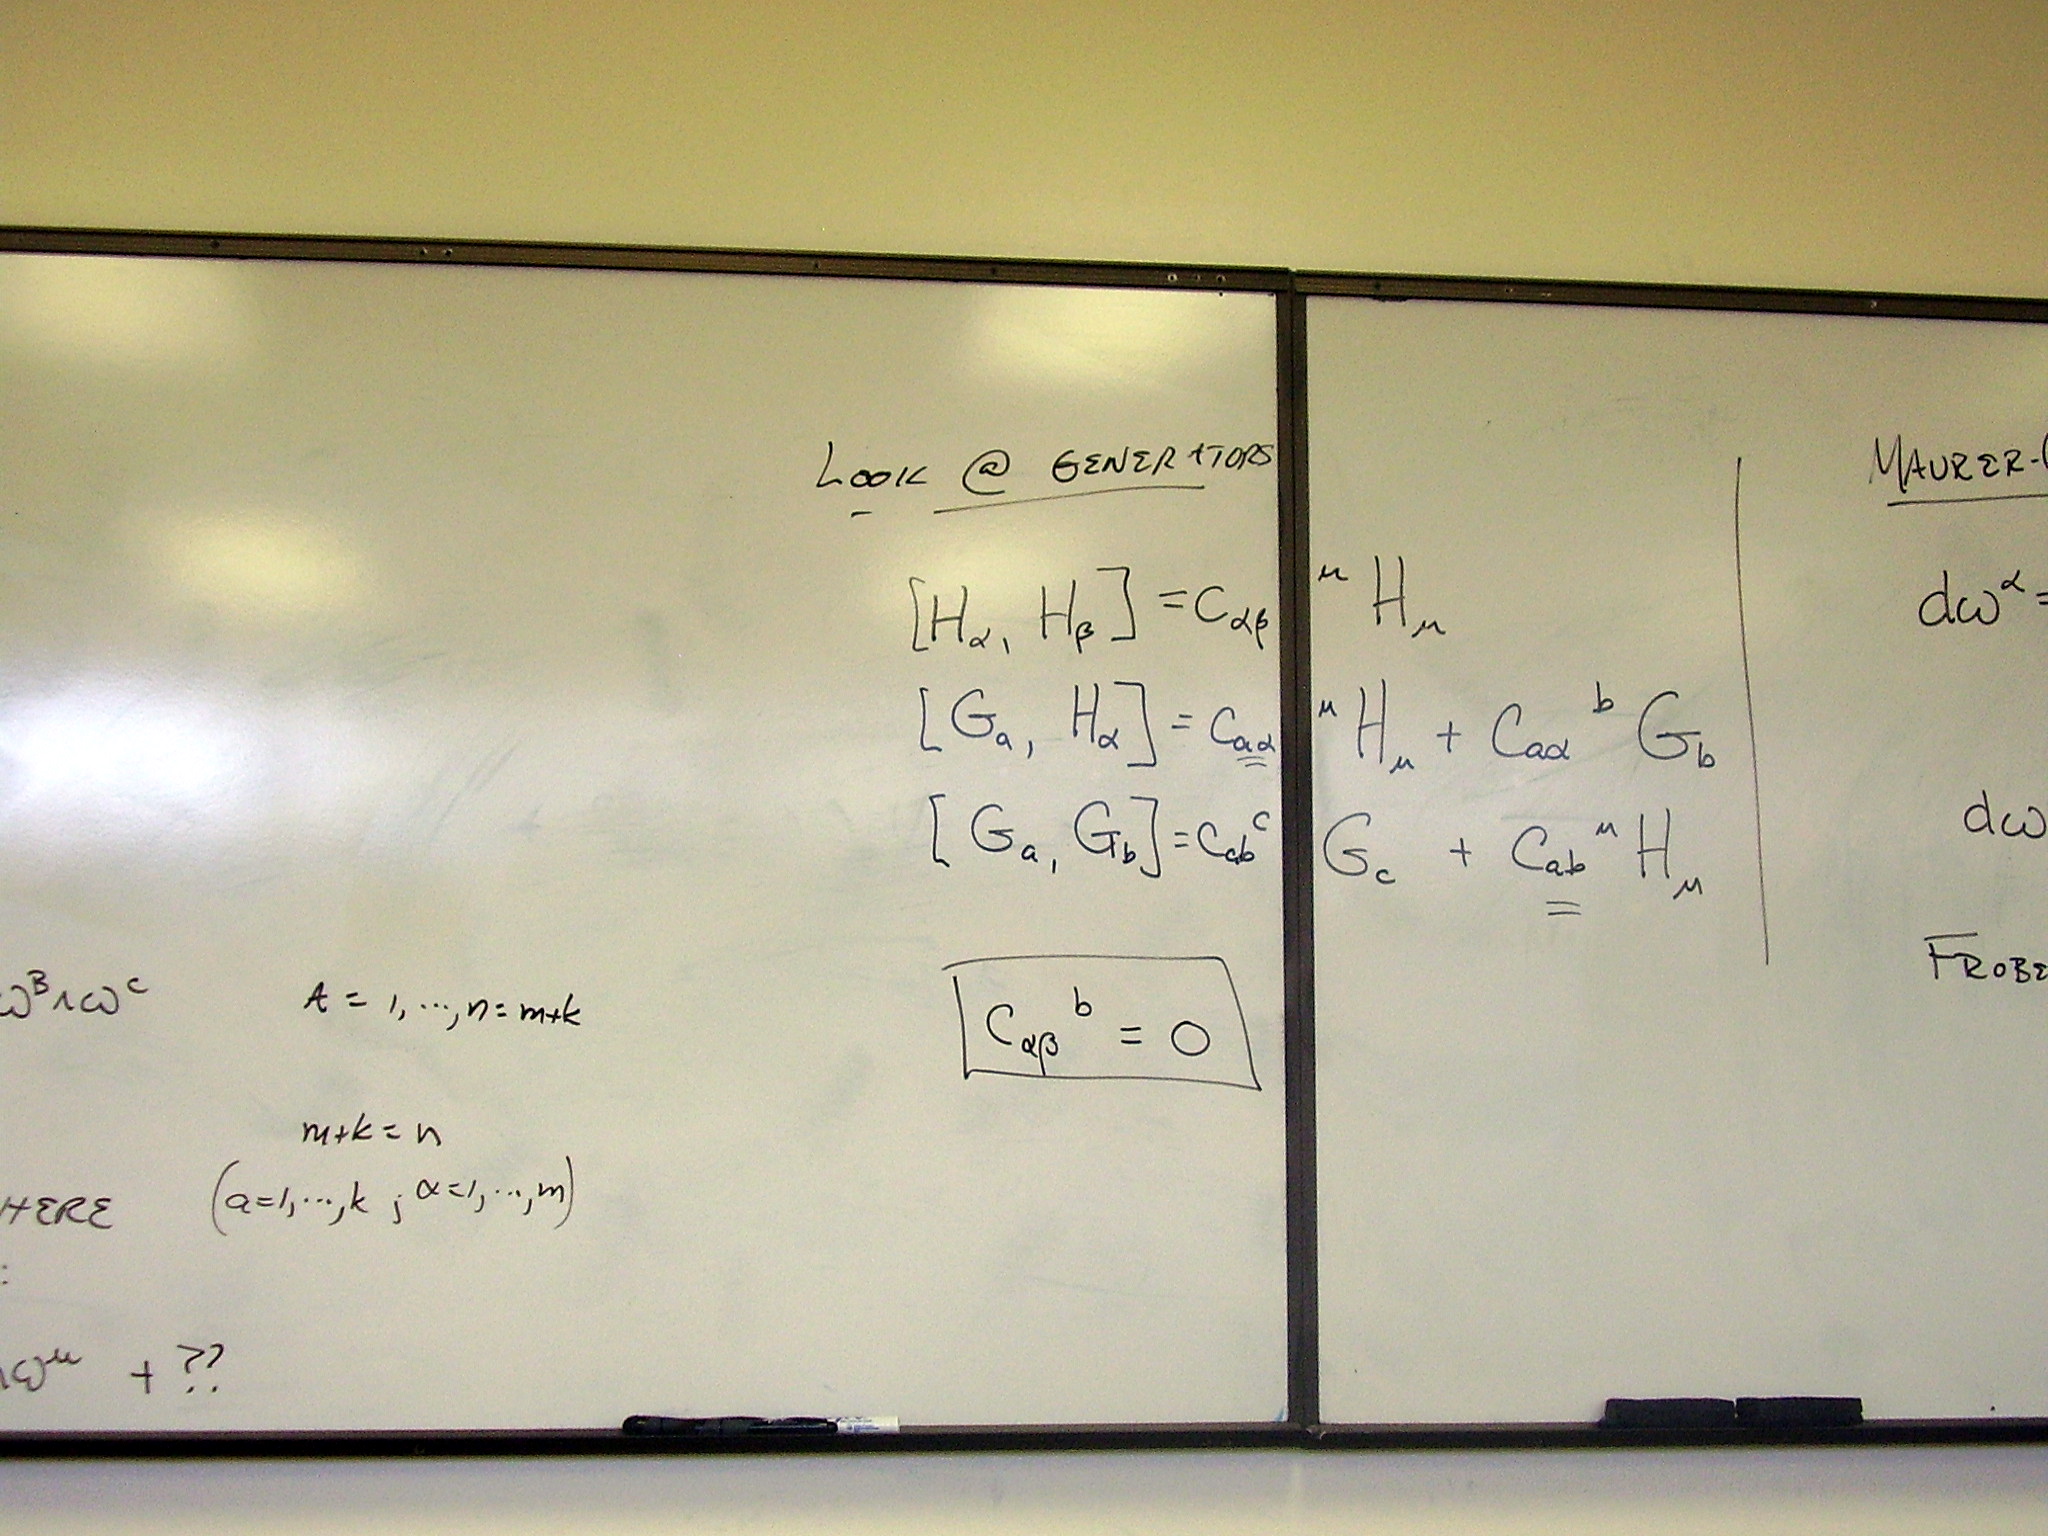 LOOK @ GENERATORS
[Hα, Hβ] = Cαβ^μ Hμ
[Ga, Hα] = Caα^μ Hμ + Caα^b Gb
[Ga, Gb] = Cab^c Gc + Cab^μ Hμ
Cαβ^b = 0
ω^B ∧ ω^C A = 1, ..., n = m+k
m+k = n
HERE (a=1, ..., k ; α=1, ..., m)
:
∧ω^μ + ??
MAURER-C
dω^α =
dω
FROBE